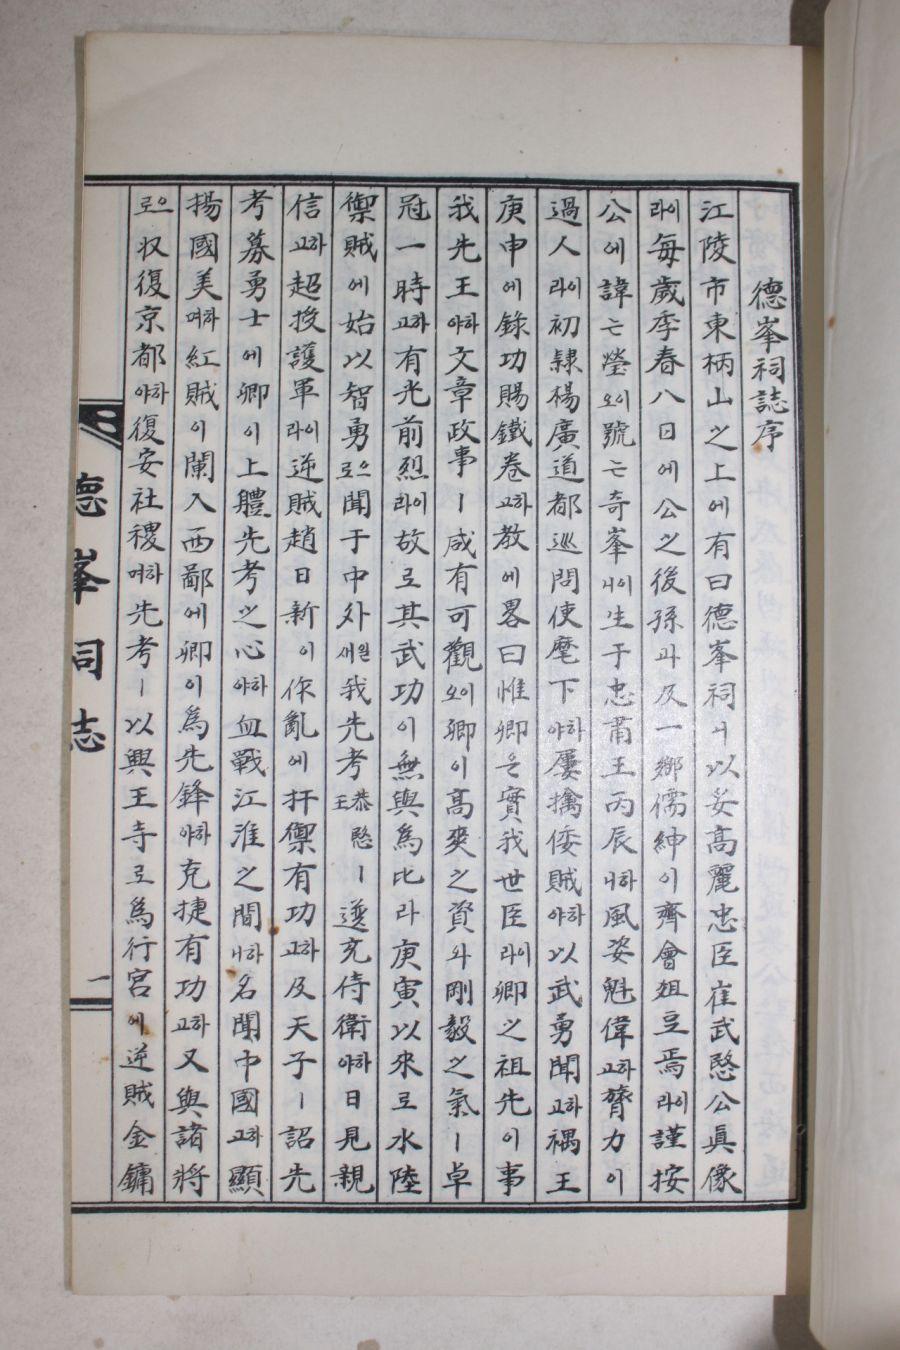 德峯祠誌序
江陵市東柄山之上에有曰德峯祠ㅓ以妥高麗忠臣崔武愍公眞像
이라每歲季春八日에公之後孫과及一鄕儒紳이齊會俎豆焉이라謹按
公에諱는瑩이오號는奇峯이니生于忠肅王丙辰하니風姿魁偉하고膂力이
過人이라初隷楊廣道都巡問使麾下하야屢擒倭賊하야以武勇聞하고禑王
庚申에錄功賜鐵卷하고教에畧曰惟卿은實我世臣이라卿之祖先이事
我先王하야文章政事ㅣ咸有可觀이오卿이高爽之資와剛毅之氣ㅣ卓
冠一時하고有光前烈이라故로其武功이無與爲比라庚寅以來로水陸
禦賊에始以智勇으로聞于中外새월我先考恭愍王ㅣ遂充侍衛하야日見親
信하고超授護軍이라逆賊趙日新이作亂에扞禦有功하고及天子ㅣ詔先
考募勇士에卿이上體先考之心하야血戰江淮之間하니名聞中國하고顯
揚國美하며紅賊이闌入西鄙에卿이爲先鋒하야克捷有功하고又與諸將
으로収復京都하야復安社稷하며先考ㅣ以興王寺로爲行宮에逆賊金鏞
德峯祠志
一